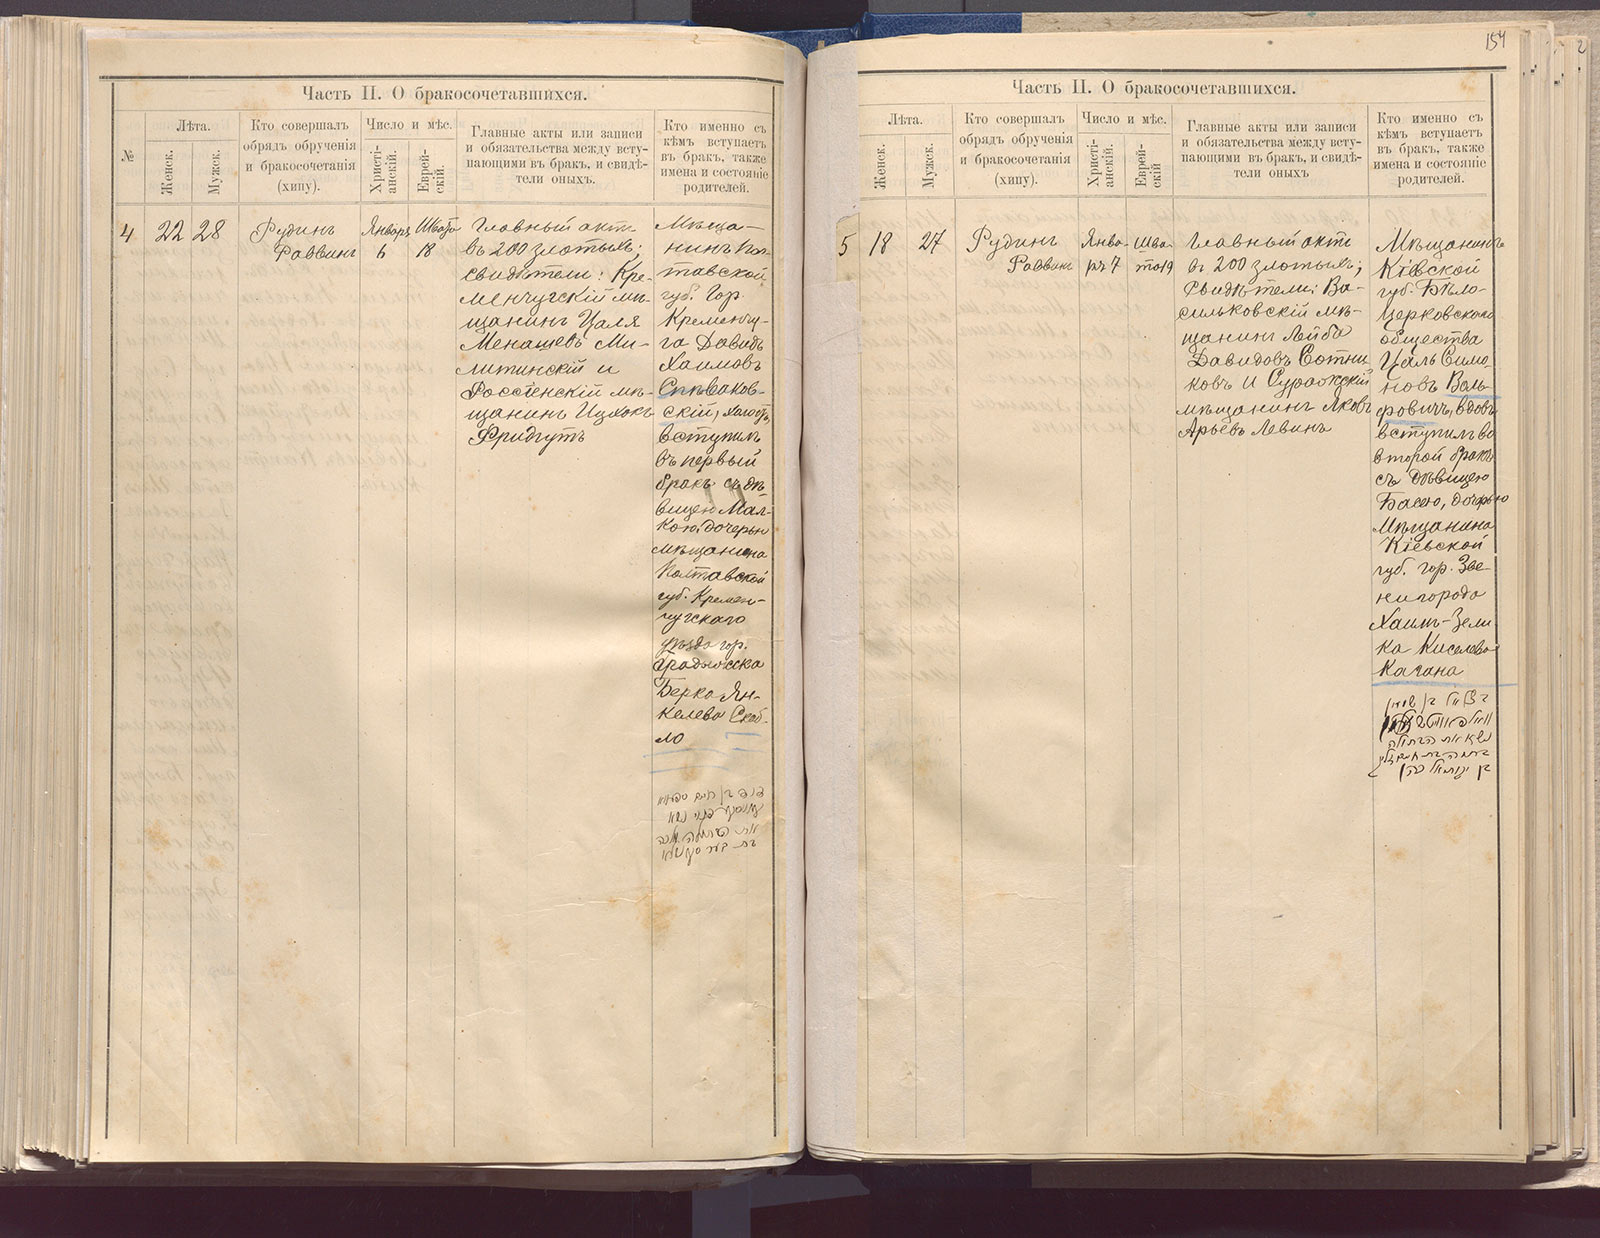 Часть II. О бракосочетавшихся.
№
Лѣта.
Женск.
Мужск.
Кто совершалъ
обрядъ обрученія
и бракосочетанія
(хипу).
Число и мѣс.
Христі-
анскій.
Еврей-
скій.
Главные акты или записи
и обязательства между всту-
пающими въ бракъ, и свидѣ-
тели оныхъ.
Кто именно съ
кѣмъ вступаетъ
въ бракъ, также
имена и состояніе
родителей.
4
22
28
Рудинъ
Раввинъ
Января
6
Швата
18
Главный актъ
въ 200 злотыхъ;
свидѣтели: Кре-
менчугскій мѣ-
щанинъ Цаля
Менашевъ Ми-
литинскій и
Россіенскій мѣ-
щанинъ Ицхокъ
Фридгутъ
Мѣща-
нинъ Пол-
тавской
губ. Гор.
Кременчу-
га Давидъ
Хаимовъ
Спѣваков-
скій, холостъ,
вступилъ
въ первый
бракъ съ дѣ-
вицею Мал-
кою, дочерью
мѣщанина
Полтавской
губ. Кремен-
чугскаго
уѣзда гор.
Градижска
Берка Ян-
келева Скоб-
ло
את הבתולה מלכה
154
Часть II. О бракосочетавшихся.
Лѣта.
Женск.
Мужск.
Кто совершалъ
обрядъ обрученія
и бракосочетанія
(хипу).
Число и мѣс.
Христі-
анскій.
Еврей-
скій
Главные акты или записи
и обязательства между всту-
пающими въ бракъ, и свидѣ-
тели оныхъ
Кто именно съ
кѣмъ вступаетъ
въ бракъ, также
имена и состояніе
родителей.
5
18
27
Рудинъ
Раввинъ
Янва-
ръ 7
Шва-
та 19
Главный актъ
въ 200 злотыхъ;
Свидѣтели: Ва-
сильковскій мѣ-
щанинъ Лейба
Давидовъ Сотни
ковъ и Суражскій
мѣщанинъ Яковъ
Арьевъ Левинъ
Мѣщанинъ
Кіевской
губ. Бѣло-
Церковскаго
общества
Цаль Симо-
новъ Воль-
фовичъ, вдовъ
вступилъ во
второй бракъ
съ дѣвицею
Басею, дочерью
мѣщанина
Кіевской
губ. гор. Зве-
нигорода
Хаимъ-Зели-
ка Киселева
Кагана
בצלאל בן שמעון
נשא את הבתולה